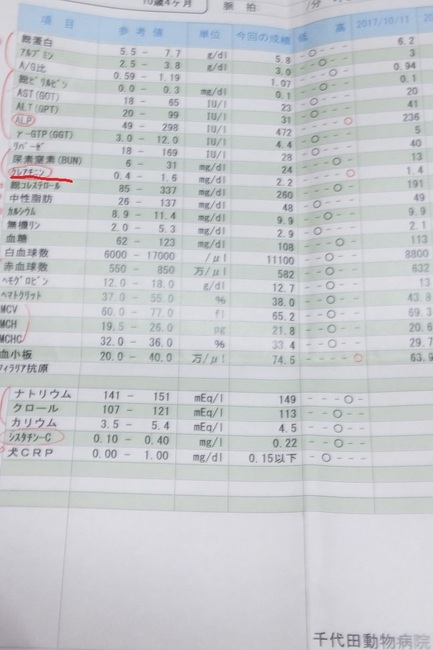 10歳4ヶ月 脈拍 /分
項目 参考値 単位 今回の成績 低 高 2017/10/11
総蛋白 5.5 - 7.7 g/dl 5.8 - ○ - - - 6.2
アルブミン 2.5 - 3.8 g/dl 3.0 - ○ - - - 3
A/G比 0.59 - 1.19 1.07 0.94
総ビリルビン 0.0 - 0.3 mg/dl 0.1 - ○ - - - 0.1
AST(GOT) 18 - 65 IU/l 23 - ○ - - - 20
ALT(GPT) 20 - 99 IU/l 31 - ○ - - - 41
ALP 49 - 298 IU/l 472 - - - - ○ 236
γ-GTP(GGT) 3.0 - 12.0 IU/l 4.4 - ○ - - - 5.5
リパーゼ 18 - 169 IU/l 28 - ○ - - - 40
尿素窒素(BUN) 6 - 31 mg/dl 24 - - - ○ - 13
クレアチニン 0.4 - 1.6 mg/dl 2.2 - - - - ○ 1.4
総コレステロール 85 - 337 mg/dl 260 - - ○ - - 191
中性脂肪 26 - 137 mg/dl 48 - ○ - - - 49
カルシウム 8.9 - 11.4 mg/dl 9.9 - - ○ - - 9.9
無機リン 2.0 - 5.3 mg/dl 2.9 - ○ - - - 2.1
血糖 62 - 123 mg/dl 108 - - - ○ - 113
白血球数 6000 - 17000 /μl 11100 - - ○ - - 8800
赤血球数 550 - 850 万/μl 582 - ○ - - - 632
ヘモグロビン 12.0 - 18.0 g/dl 12.7 - ○ - - - 13
ヘマトクリット 37.0 - 55.0 % 38.0 - ○ - - - 43.8
MCV 60.0 - 77.0 fl 65.2 - ○ - - - 69.3
MCH 19.5 - 26.0 pg 21.8 - ○ - - - 20.6
MCHC 32.0 - 36.0 % 33.4 - ○ - - - 29.7
血小板 20.0 - 40.0 万/μl 74.5 - - - - ○ 63.9
フィラリア抗原
ナトリウム 141 - 151 mEq/l 149 - - - ○ -
クロール 107 - 121 mEq/l 113 - - ○ - -
カリウム 3.5 - 5.4 mEq/l 4.5 - - ○ - -
シスタチン-C 0.10 - 0.40 mg/l 0.22 - - ○ - -
犬CRP 0.00 - 1.00 mg/dl 0.15以下 - ○ - - -
千代田動物病院